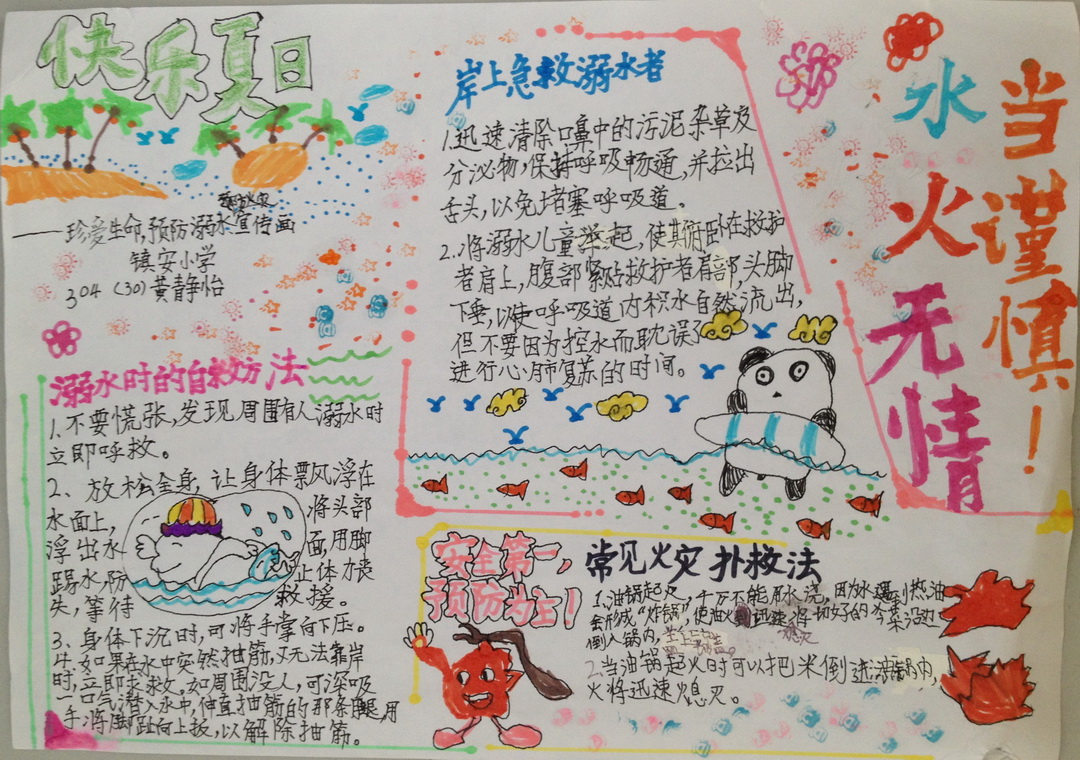 快乐夏日
——珍爱生命,预防溺水宣传画
镇安小学
304 (30) 黄静怡
溺水时的自救方法
1、不要慌张,发现周围有人溺水时
立即呼救。
2、放松全身,让身体飘浮在
水面上,将头部
浮出水面,用脚
踢水,防止体力丧
失,等待救援。
3、身体下沉时,可将手掌向下压。
4.如果在水中突然抽筋,又无法靠岸
时,立即求救。如周围没人,可深吸
一口气潜入水中,伸直抽筋的那条腿,用
手将脚趾向上扳,以解除抽筋。
岸上急救溺水者
1.迅速清除口鼻中的污泥杂草及
分泌物,保持呼吸畅通,并拉出
舌头,以免堵塞呼吸道。
2.将溺水儿童举起,使其俯卧在救护
者肩上,腹部紧贴救护者肩部,头脚
下垂,以使呼吸道内积水自然流出,
但不要因为控水而耽误了
进行心肺复苏的时间。
安全第一,
预防为主!
常见火灾扑救法
1.油锅起火,千万不能用水浇,因为水遇到热油
会形成“炸锅”,使油火到迅速将切好的冷菜沿边
倒入锅内,盖上锅盖。熄灭
2.当油锅起火时可以把米倒进油锅内,
火将迅速熄灭。
水火无情
当谨慎!